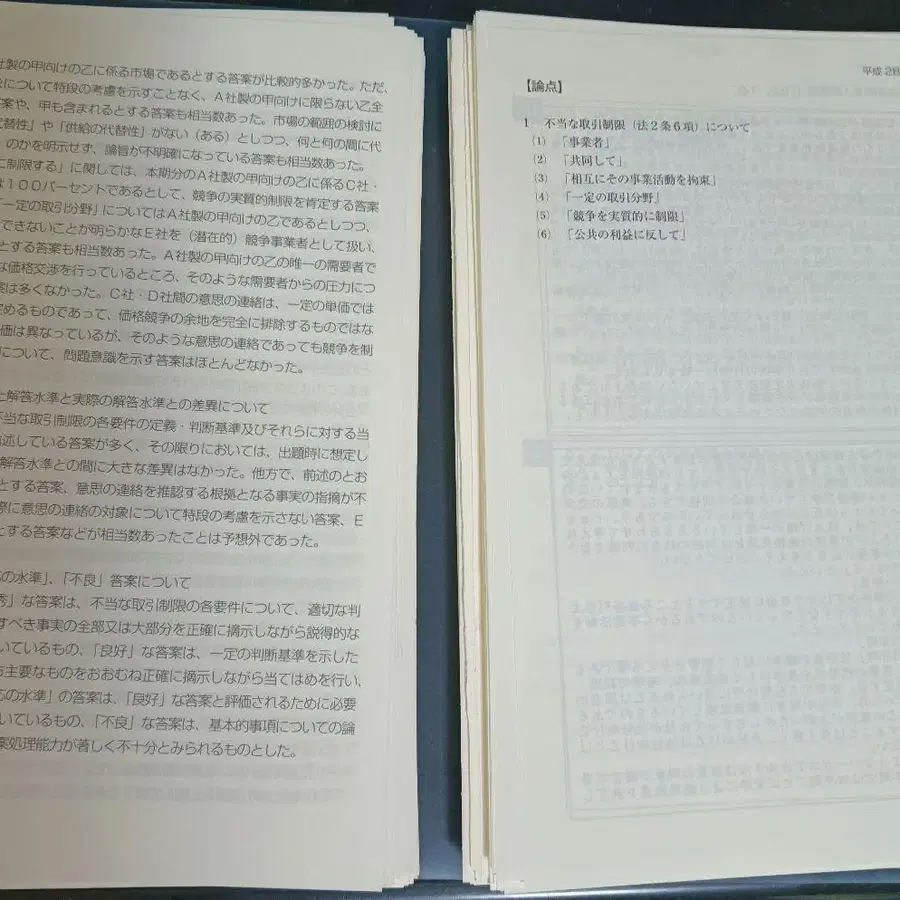 社製の甲向けの乙に係る市場であるとする答案が比較的多かった。ただ、
について特段の考慮を示すことなく、A社製の甲向けに限らない乙全
答案や、甲も含まれるとする答案も相当数あった。市場の範囲の検討に
代替性」や「供給の代替性」がない(ある)としつつ、何と何の間に代
のかを明示せず、論旨が不明確になっている答案も相当数あった。
に制限する」に関しては、本期分のA社製の甲向けの乙に係るC社・
は100パーセントであるとして、競争の実質的制限を肯定する答案
「一定の取引分野」についてはA社製の甲向けの乙であるとしつつ、
できないことが明らかなE社を(潜在的)競争事業者として扱い、
とする答案も相当数あった。A社製の甲向けの乙の唯一の需要者で
な価格交渉を行っているところ、そのような需要者からの圧力につ
案は多くなかった。C社・D社間の意思の連絡は、一定の単価では
定めるものであって、価格競争の余地を完全に排除するものではな
価は異なっているが、そのような意思の連絡であっても競争を制
について、問題意識を示す答案はほとんどなかった。
た解答水準と実際の解答水準との差異について
不当な取引制限の各要件の定義・判断基準及びそれらに対する当
述している答案が多く、その限りにおいては、出題時に想定し
解答水準との間に大きな差異はなかった。他方で、前述のとお
とする答案、意思の連絡を推認する根拠となる事実の指摘が不
際に意思の連絡の対象について特段の考慮を示さない答案、E
とする答案などが相当数あったことは予想外であった。
の水準」、「不良」答案について
秀」な答案は、不当な取引制限の各要件について、適切な判
すべき事実の全部又は大部分を正確に摘示しながら説得的な
いているもの、「良好」な答案は、一定の判断基準を示した
ち主要なものをおおむね正確に摘示しながら当てはめを行い、
応の水準」の答案は、「良好」な答案と評価されるために必要
いているもの、「不良」な答案は、基本的事項についての論
案処理能力が著しく不十分とみられるものとした。
平成28
【論点】
1 不当な取引制限(法2条6項)について
(1) 「事業者」
(2) 「共同して」
(3) 「相互にその事業活動を拘束」
(4) 「一定の取引分野」
(5) 「競争を実質的に制限」
(6) 「公共の利益に反して」